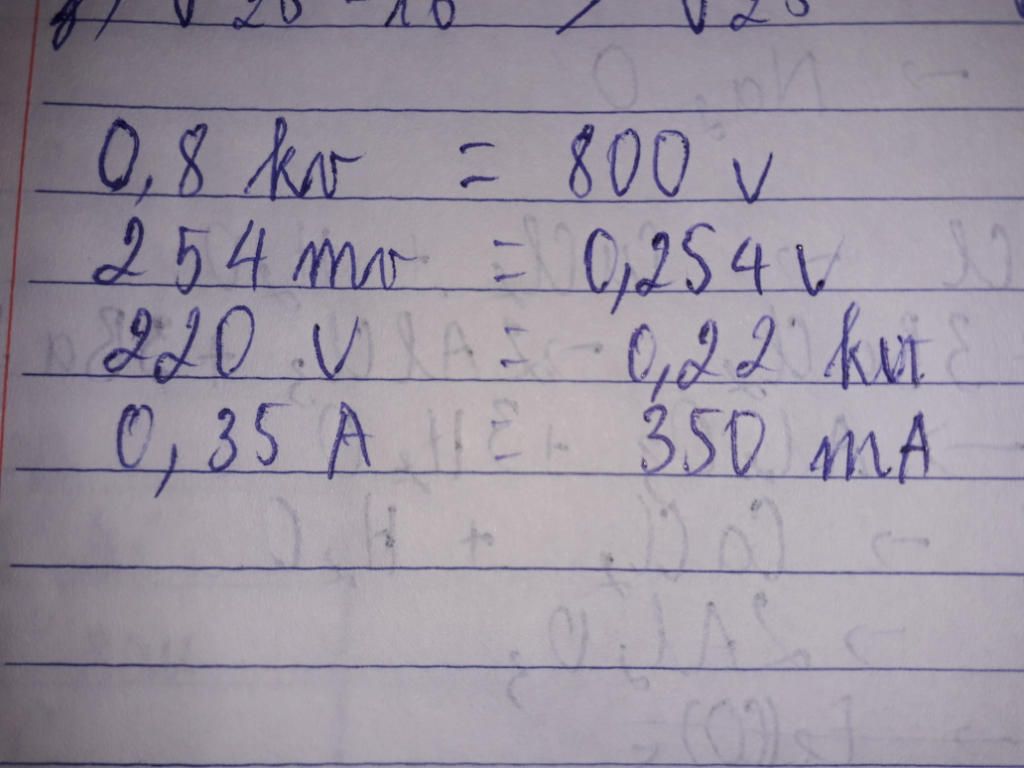 0,8 kv = 800 v
254 mv = 0,254 v
220 V = 0,22 kv
0,35 A 350 mA